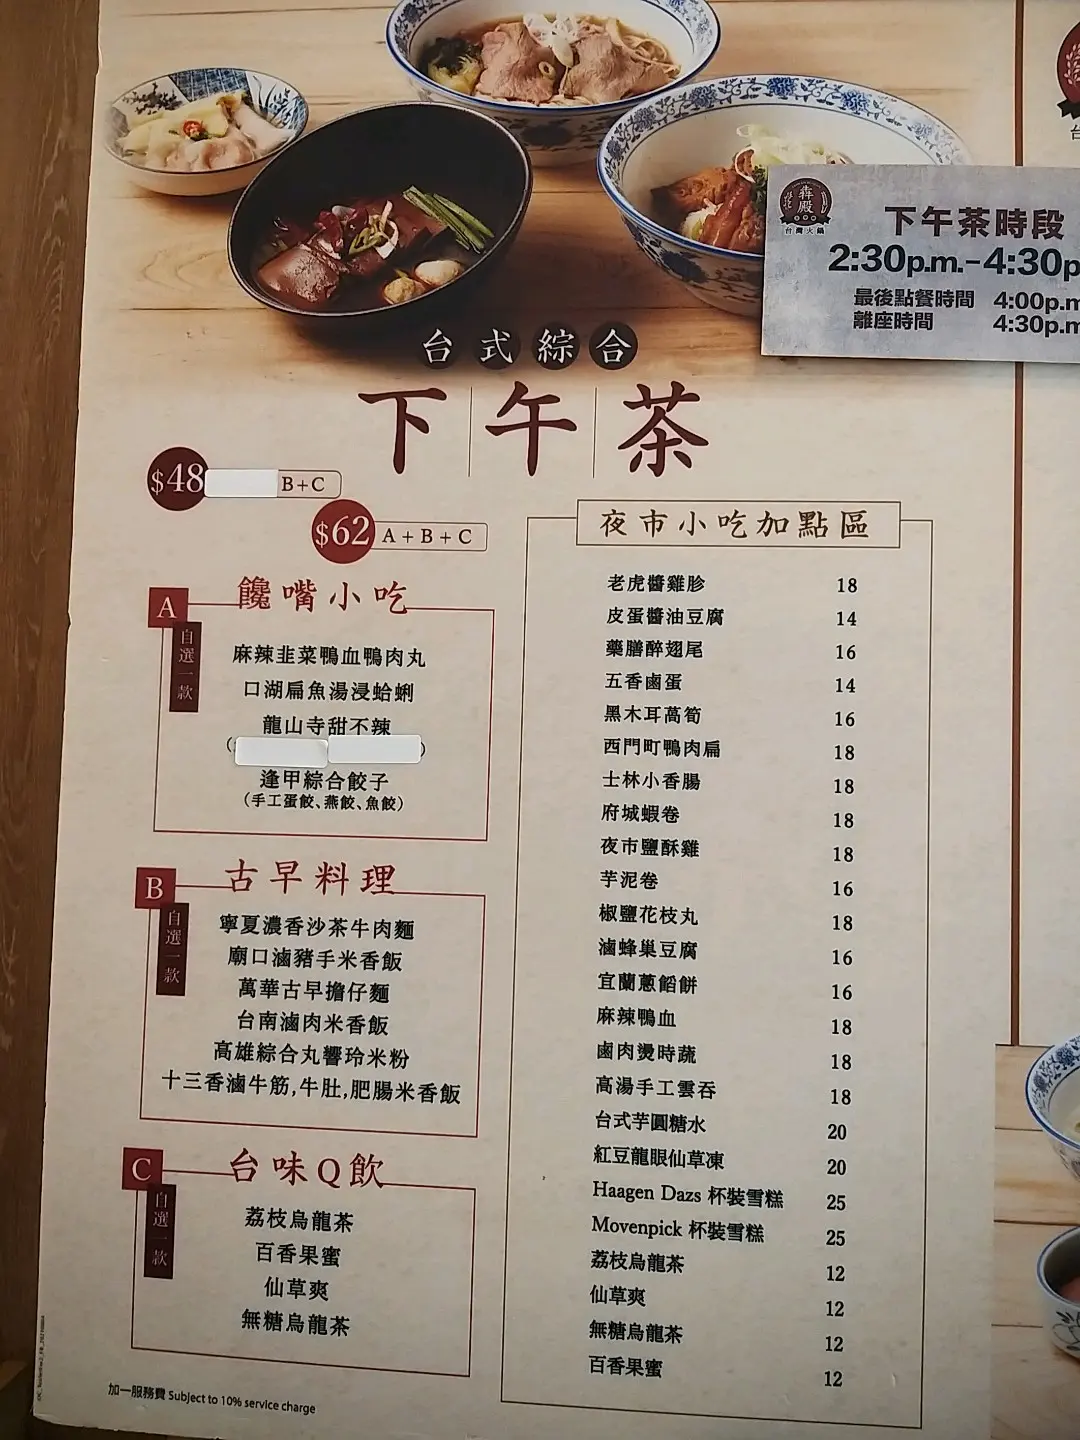 犇殿
台灣火鍋
下午茶時段
2:30p.m.-4:30p
最後點餐時間 4:00p.m
離座時間 4:30p.m
台式綜合
下午茶
$48 B+C
$62 A+B+C
A 饞嘴小吃
自選一款
麻辣韭菜鴨血鴨肉丸
口湖扁魚湯浸蛤蜊
龍山寺甜不辣
逢甲綜合餃子
(手工蛋餃、燕餃、魚餃)
B 古早料理
自選一款
寧夏濃香沙茶牛肉麵
廟口滷豬手米香飯
萬華古早擔仔麵
台南滷肉米香飯
高雄綜合丸響玲米粉
十三香滷牛筋,牛肚,肥腸米香飯
C 台味Q飲
自選一款
荔枝烏龍茶
百香果蜜
仙草爽
無糖烏龍茶
加一服務費 Subject to 10% service charge
夜市小吃加點區
老虎醬雞胗 18
皮蛋醬油豆腐 14
藥膳醉翅尾 16
五香鹵蛋 14
黑木耳萵筍 16
西門町鴨肉扁 18
士林小香腸 18
府城蝦卷 18
夜市鹽酥雞 18
芋泥卷 16
椒鹽花枝丸 18
滷蜂巢豆腐 16
宜蘭蔥餡餅 16
麻辣鴨血 18
鹵肉燙時蔬 18
高湯手工雲吞 18
台式芋圓糖水 20
紅豆龍眼仙草凍 20
Haagen Dazs 杯裝雪糕 25
Movenpick 杯裝雪糕 25
荔枝烏龍茶 12
仙草爽 12
無糖烏龍茶 12
百香果蜜 12